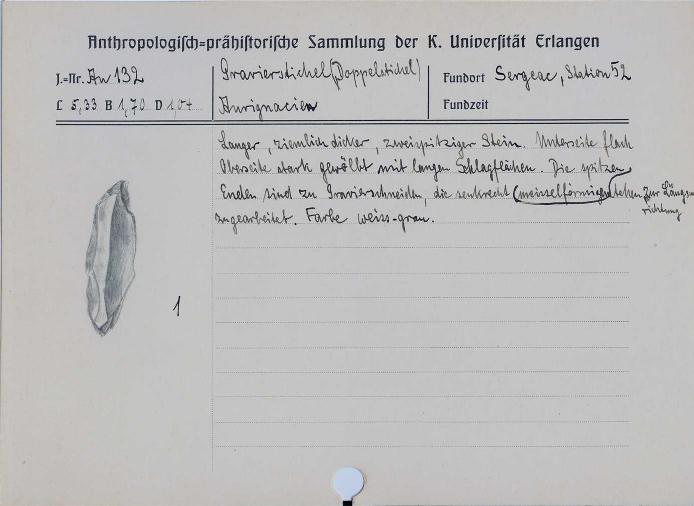 Anthropologisch=prähistorische Sammlung der K. Universität Erlangen
J.=Nr. Au 132
Gravierstichel (Doppelstichel)
Fundort Sergeac, Station 52
L 5,33 B 1,70 D 1,04
Aurignacien
Fundzeit
Langer, ziemlich dicker, zweispitziger Stein. Unterseite flach
Oberseite stark gewölbt mit langen Schlagflächen. Die spitzen
Enden sind zu Gravierschneiden, die senkrecht (meisselförmigen) stehen zur Längs=
richtung
zugearbeitet. Farbe weiss-grau.
1